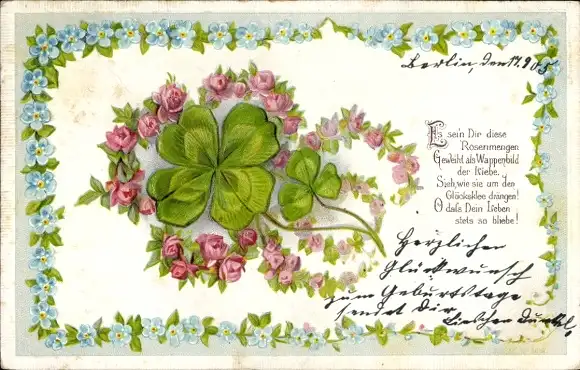 Berlin, den 17.9.05
Es sei'n Dir diese
Rosenmengen
Geweiht als Wappenbild
der Liebe.
Sieh, wie sie um den
Glücksklee drängen!
O daß Dein Lieben
stets so bliebe!
Herzlichen
Glückwunsch
zum Geburtstage
sendet Dir
Lieschen